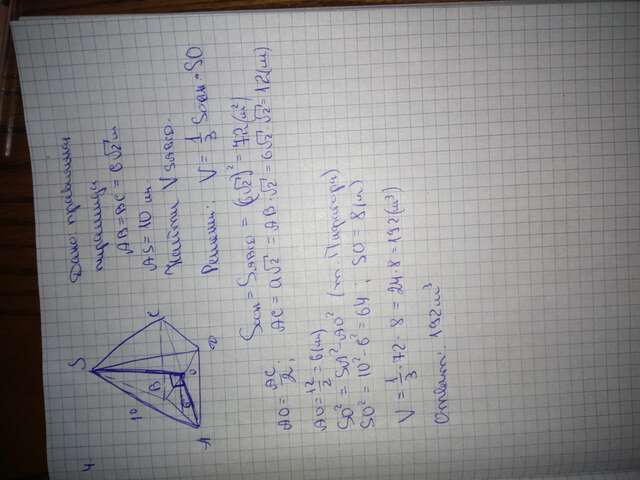 4
S
10
B
C
6
O
A
D
Дано: правильная
пирамида
AB=BC=6√2 м
AS=10 м.
Найти V SABCD.
Решение: V = 1/3 Sосн · SO
Sосн = SABCD = (6√2)² = 72 (м²)
AC = a√2 = AB·√2 = 6√2·√2 = 12 (м)
AO = AC/2;
AO = 12/2 = 6 (м)
SO² = SA² - AO² (т. Пифагора)
SO² = 10² - 6² = 64; SO = 8 (м)
V = 1/3 · 72 · 8 = 24·8 = 192 (м³)
Ответ: 192 м³